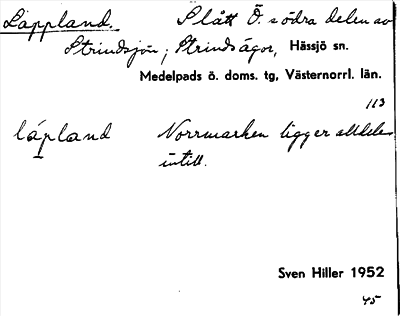 Lappland. Slått Ö. södra delen av
Strindsjön; Strindsågor, Hässjö sn.
Medelpads ö. doms. tg, Västernorrl. län.
113
lápland Norrmarken ligger alldeles
intill.
Sven Hiller 1952
45